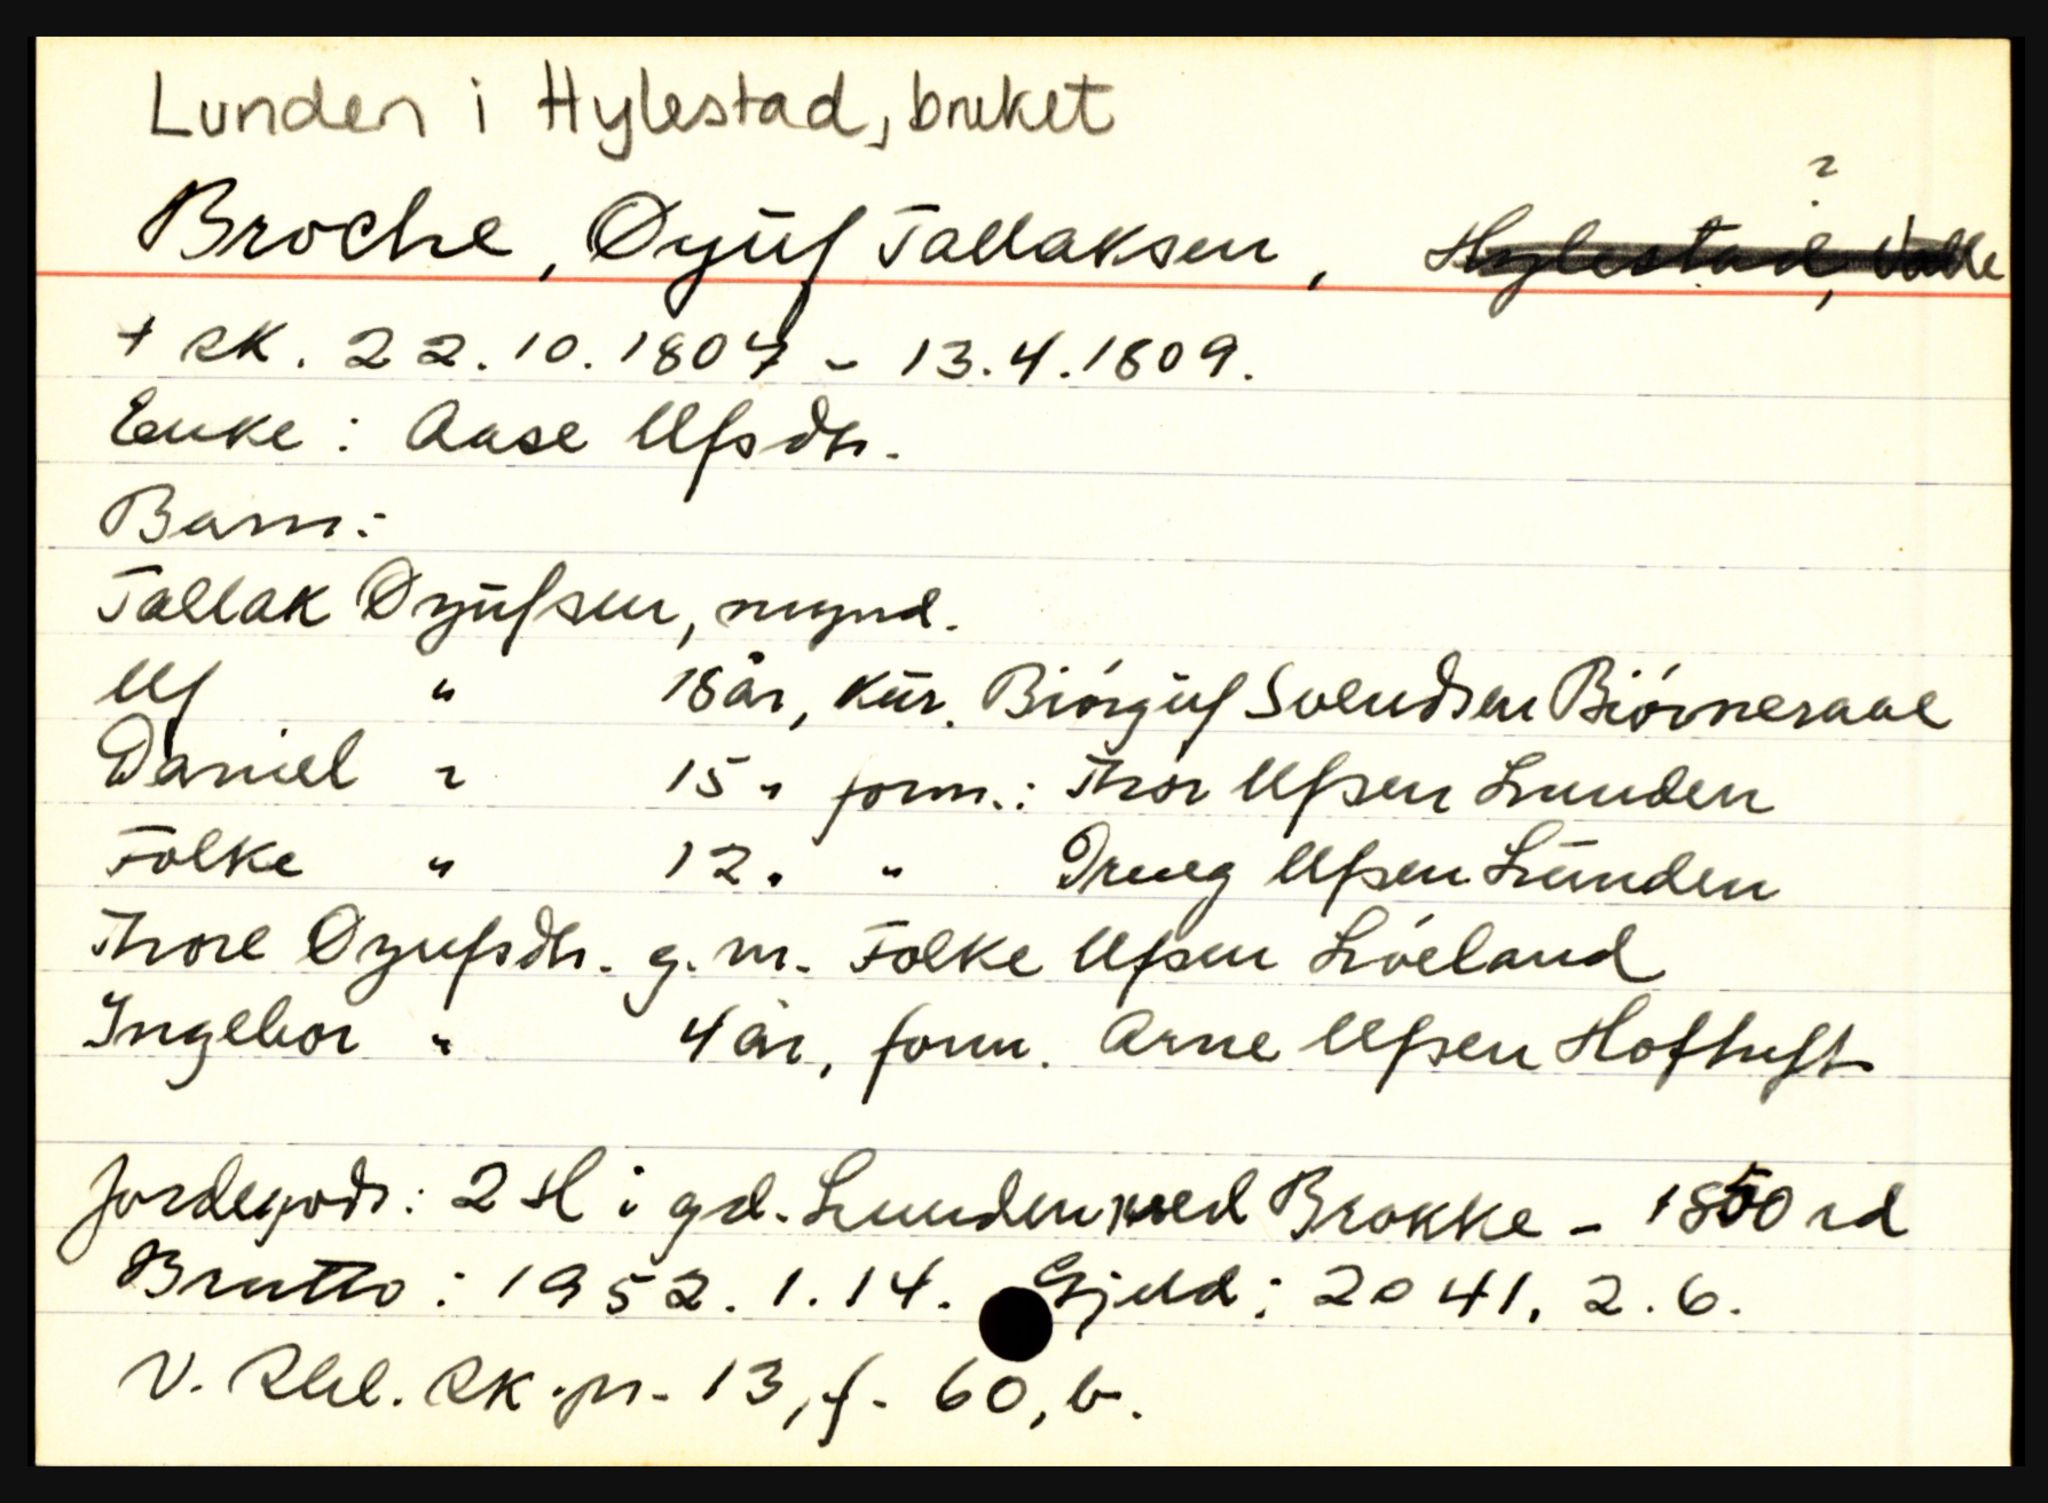 Lunden i Hylestad, bruket
?
Broche, Øyuf Tallaksen, Hylestad, Valle
+ sk. 22.10.1807 - 13.4.1809.
Enke: Aase Ulfsdtr.
Barn:
Tallak Øyufsen, mynd.
Ulf " 18 år, kur. Biørguf Svendsen Biørneraae
Daniel " 15 " form.: Thor Ulfsen Lunden
Folke " 12 " " Dreng Ulfsen Lunden
Thore Øyufsdtr. g.m. Folke Ulfsen Løeland
Ingebor " 4 år, form. Arne Ulfsen Hoftuft
Jordegods: 2 H i gd. Lunden med Brokke - 1850 rd
Brutto: 1952.1.14. Gjeld: 2041.2.6.
V. Rbl. sk.pr. 13, f. 60, b.